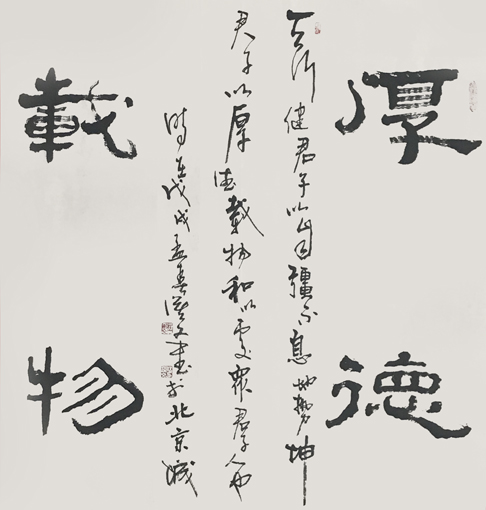 厚德
載物
天行健君子以自彊不息地勢坤
君子以厚德載物和以處衆君子人也
時在戊戌孟春書於北京城